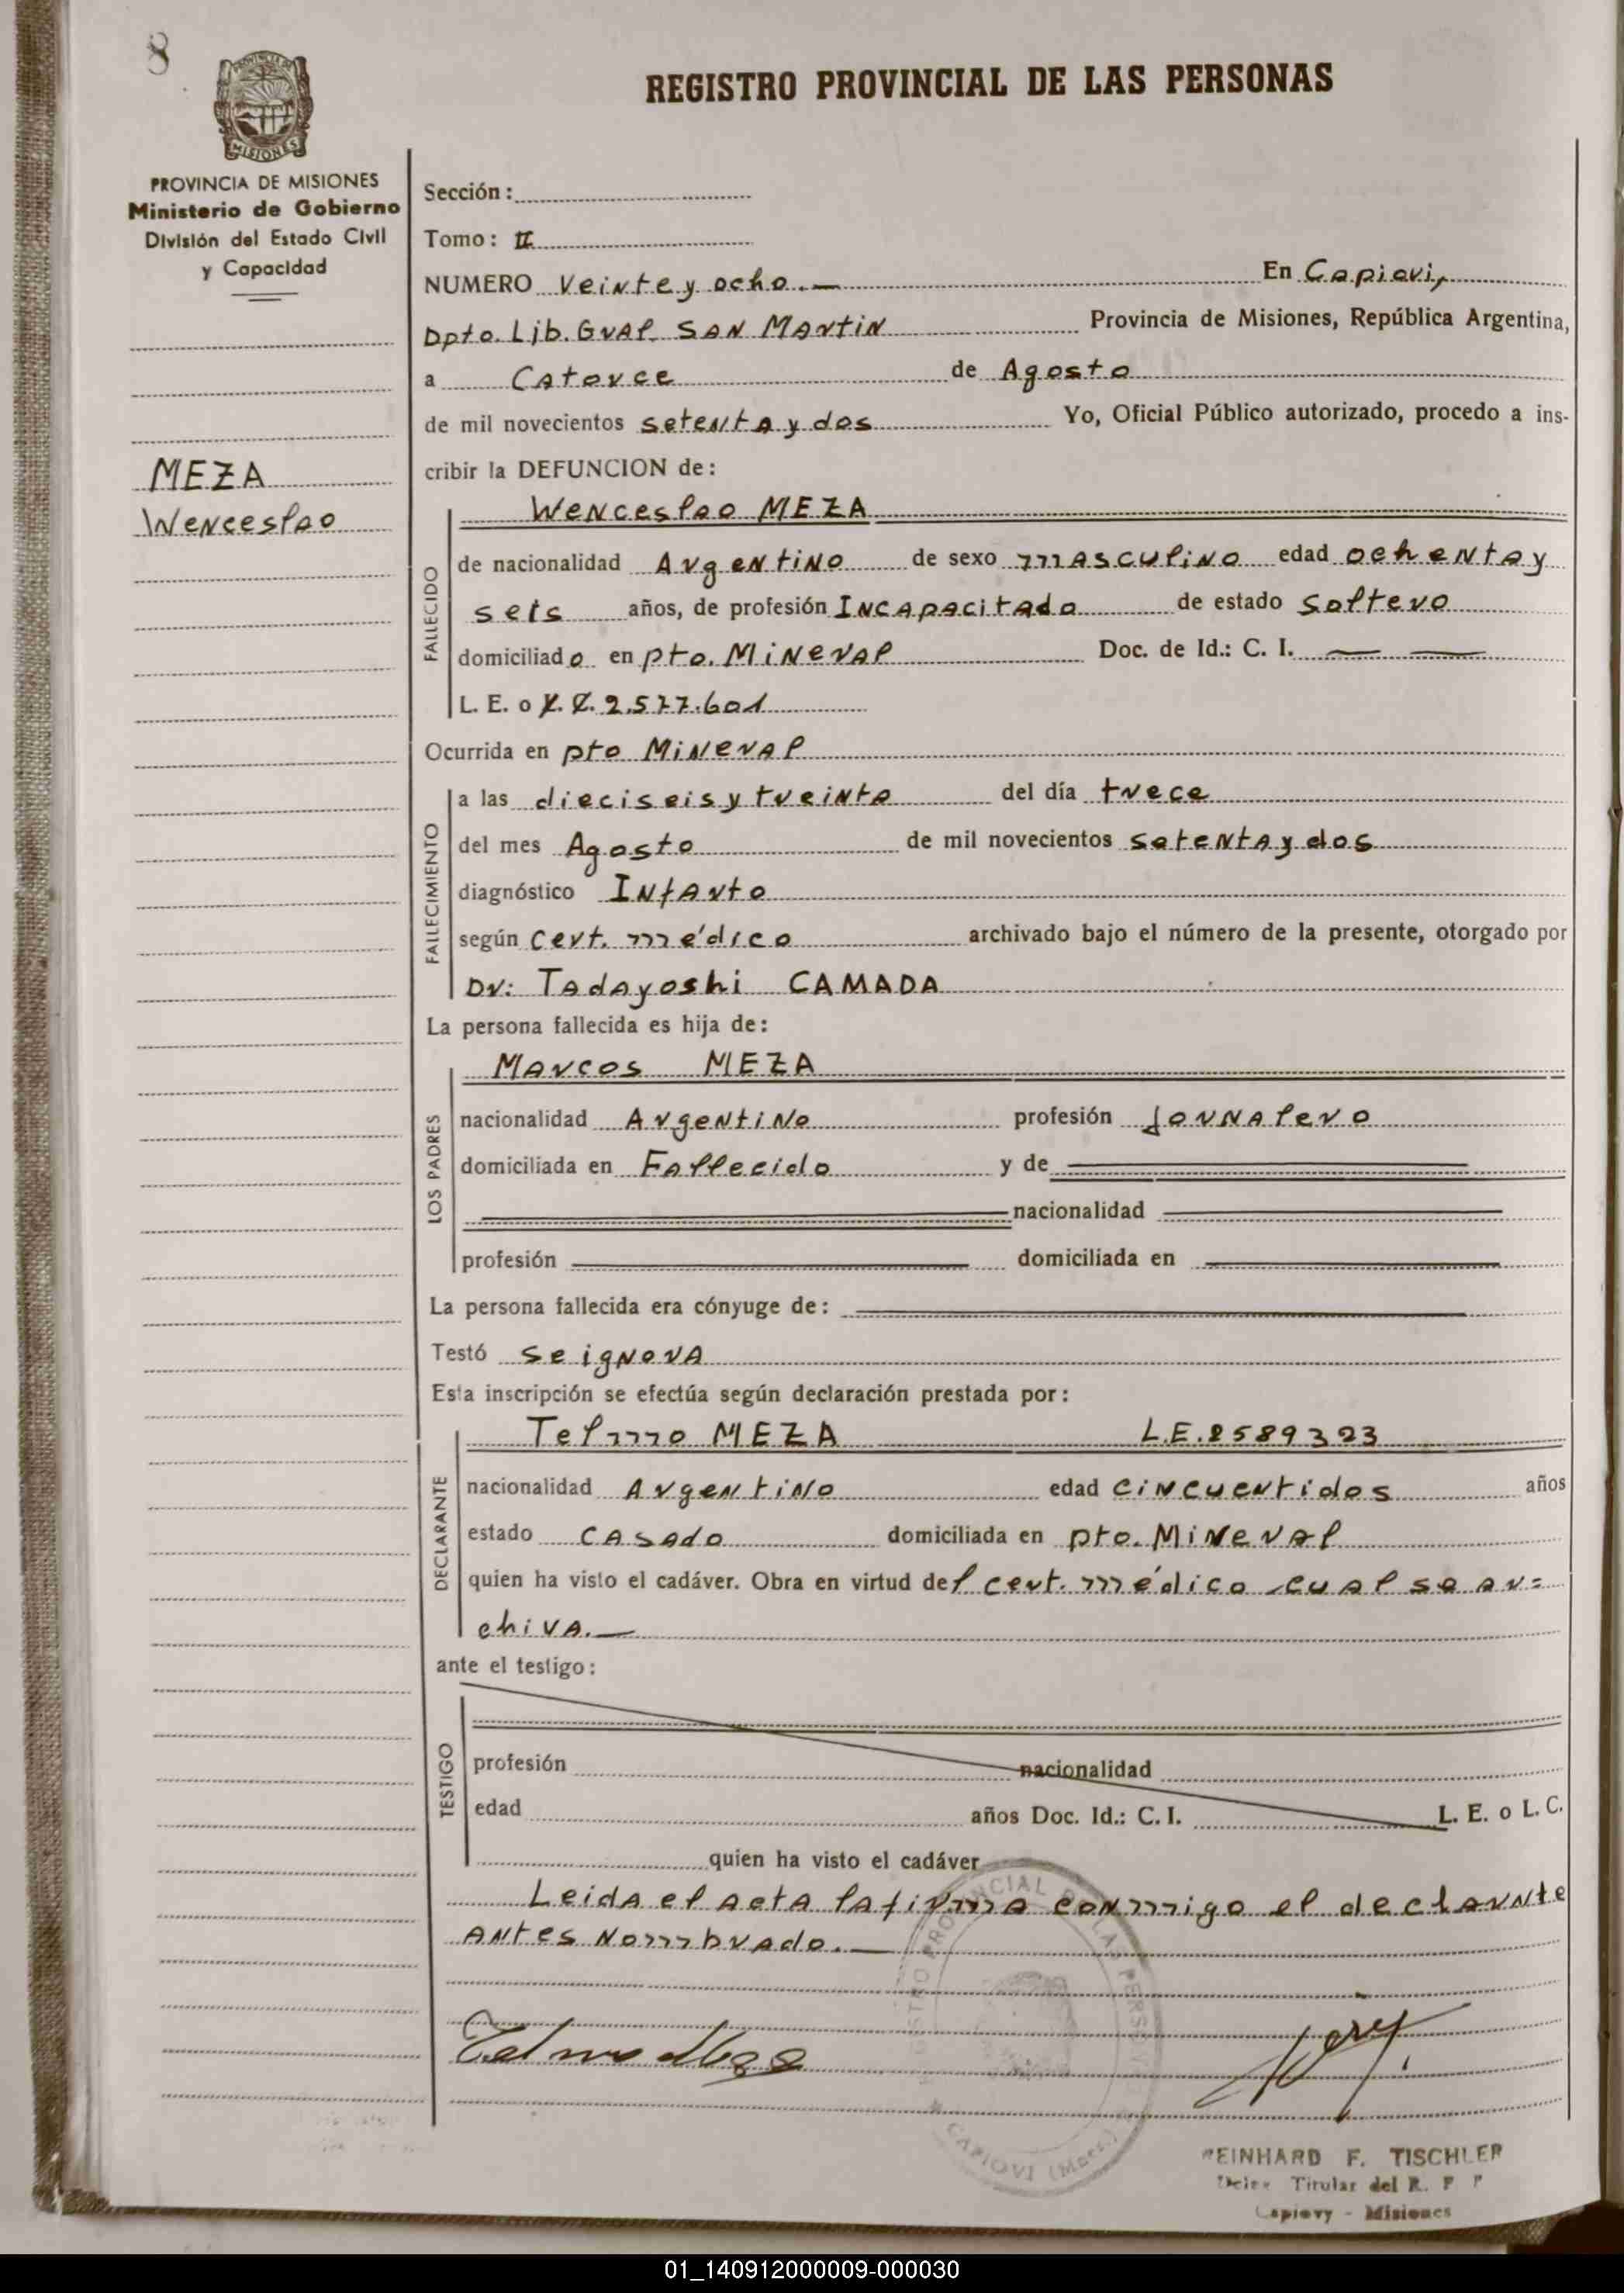 8
REGISTRO PROVINCIAL DE LAS PERSONAS
MISIONES
PROVINCIA DE MISIONES
Ministerio de Gobierno
División del Estado Civil
y Capacidad
MEZA
Wenceslao
Sección:
Tomo: II
NUMERO Veinte y ocho.— En Capiovi,
Dpto. Lib. Gral. SAN Martin Provincia de Misiones, República Argentina,
a Catorce de Agosto
de mil novecientos setenta y dos Yo, Oficial Público autorizado, procedo a ins-
cribir la DEFUNCION de:
Wenceslao MEZA
FALLECIDO
de nacionalidad Argentino de sexo masculino edad ochenta y
seis años, de profesión Incapacitado de estado soltero
domiciliado en pto. Mineral Doc. de Id.: C. I. — —
L. E. o L. C. 2.577.601
Ocurrida en pto Mineral
FALLECIMIENTO
a las dieciseis y treinta del día trece
del mes Agosto de mil novecientos setenta y dos
diagnóstico Infarto
según Cert. médico archivado bajo el número de la presente, otorgado por
Dr: Tadayoshi CAMADA
La persona fallecida es hija de:
LOS PADRES
Marcos MEZA
nacionalidad Argentino profesión Jornalero
domiciliada en Fallecido y de
nacionalidad
profesión domiciliada en
La persona fallecida era cónyuge de:
Testó se ignora
Esta inscripción se efectúa según declaración prestada por:
DECLARANTE
Telmo MEZA L.E. 2589323
nacionalidad Argentino edad cincuentidos años
estado CASADO domiciliada en pto. Mineral
quien ha visto el cadáver. Obra en virtud del cert. médico cual se ar=
chiva.—
ante el testigo:
TESTIGO
profesión nacionalidad
edad años Doc. Id.: C. I. L. E. o L. C.
quien ha visto el cadáver
Leida el acta la firma conmigo el declarnte
Antes Nombrado.—
REGISTRO PROVINCIAL DE LAS PERSONAS
CAPIOVI (Mnes.)
Telmo Meza
REINHARD F. TISCHLER
Titular del R. P P
Capiovy - Misiones
01_140912000009-000030